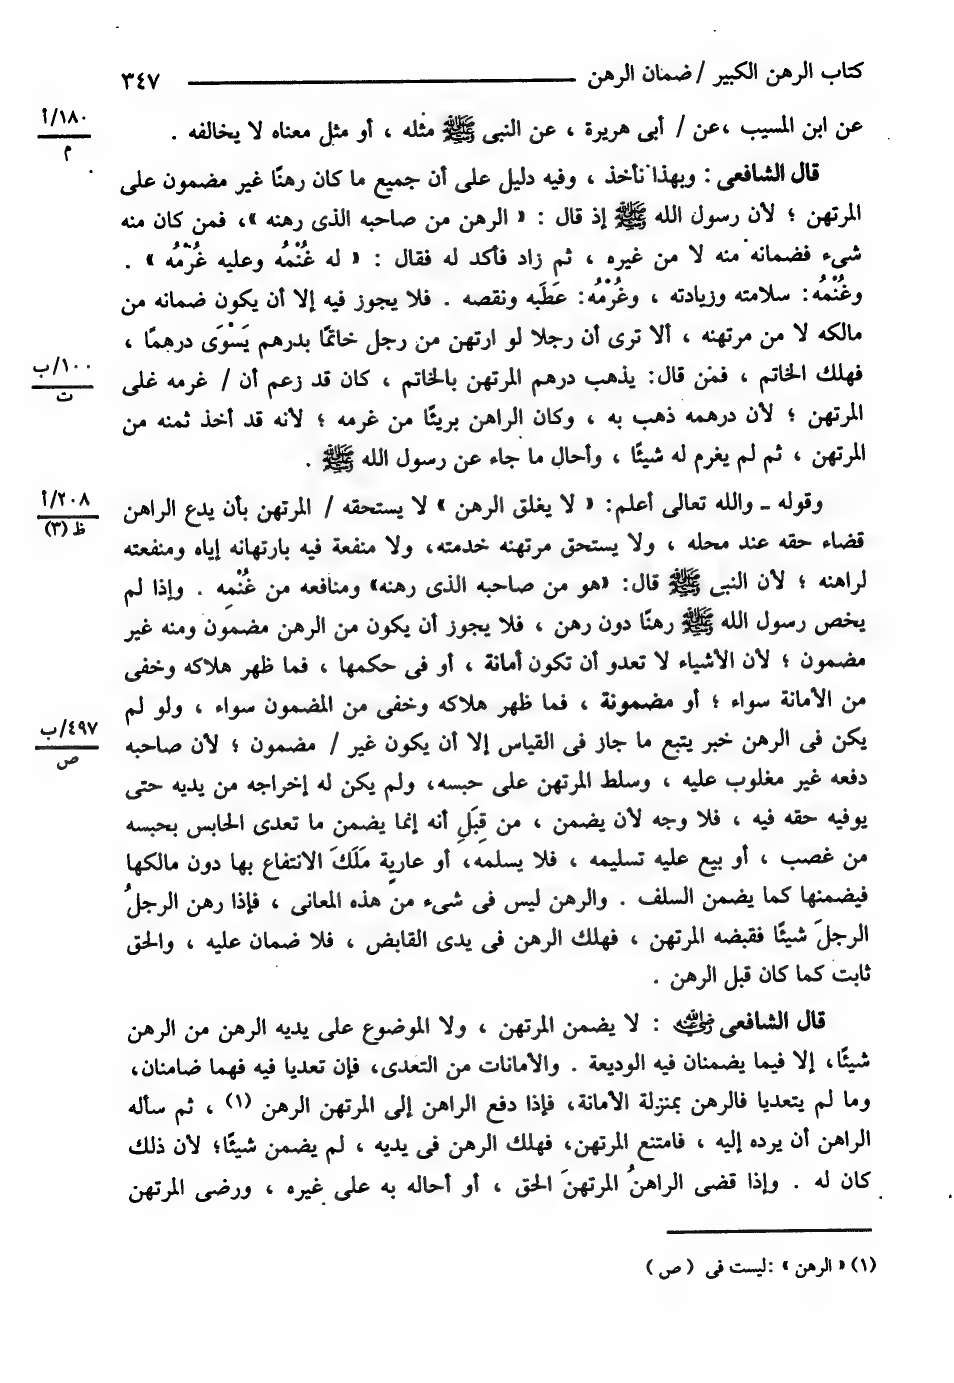 كتاب الرهن الكبير / ضمان الرهن ٣٤٧
عن ابن المسيب ، عن / أبى هريرة ، عن النبى ﷺ مثله ، أو مثل معناه لا يخالفه .
١٨٠/أ
م
قال الشافعى : وبهذا نأخذ ، وفيه دليل على أن جميع ما كان رهنًا غير مضمون على
المرتهن ؛ لأن رسول الله ﷺ إذ قال : « الرهن من صاحبه الذى رهنه »، فمن كان منه
شىء فضمانه منه لا من غيره ، ثم زاد فأكد له فقال : « له غُنْمُه وعليه غُرْمُه » .
وغُنْمُه: سلامته وزيادته ، وغُرْمُه: عَطَبه ونقصه . فلا يجوز فيه إلا أن يكون ضمانه من
مالكه لا من مرتهنه ، ألا ترى أن رجلا لو ارتهن من رجل خاتمًا بدرهم يَسْوَى درهمًا ،
فهلك الخاتم ، فمن قال: يذهب درهم المرتهن بالخاتم ، كان قد زعم أن / غرمه على
١٠٠/ب
ت
المرتهن ؛ لأن درهمه ذهب به ، وكان الراهن بريئًا من غرمه ؛ لأنه قد أخذ ثمنه من
المرتهن ، ثم لم يغرم له شيئًا ، وأحال ما جاء عن رسول الله ﷺ .
وقوله ـ والله تعالى أعلم: « لا يغلق الرهن » لا يستحقه / المرتهن بأن يدع الراهن
٢٠٨/أ
ظ (٣)
قضاء حقه عند محله ، ولا يستحق مرتهنه خدمته، ولا منفعة فيه بارتهانه إياه ومنفعته
لراهنه ؛ لأن النبى ﷺ قال: «هو من صاحبه الذى رهنه» ومنافعه من غُنْمِه . وإذا لم
يخص رسول الله ﷺ رهنًا دون رهن ، فلا يجوز أن يكون من الرهن مضمون ومنه غير
مضمون ؛ لأن الأشياء لا تعدو أن تكون أمانة ، أو فى حكمها ، فما ظهر هلاكه وخفى
من الأمانة سواء ؛ أو مضمونة ، فما ظهر هلاكه وخفى من المضمون سواء ، ولو لم
يكن فى الرهن خبر يتبع ما جاز فى القياس إلا أن يكون غير / مضمون ؛ لأن صاحبه
٤٩٧/ب
ص
دفعه غير مغلوب عليه ، وسلط المرتهن على حبسه، ولم يكن له إخراجه من يديه حتى
يوفيه حقه فيه ، فلا وجه لأن يضمن ، من قِبَلِ أنه إنما يضمن ما تعدى الحابس بحبسه
من غصب ، أو بيع عليه تسليمه ، فلا يسلمه، أو عاريةٍ مَلَكَ الانتفاع بها دون مالكها
فيضمنها كما يضمن السلف . والرهن ليس فى شىء من هذه المعانى ، فإذا رهن الرجلُ
الرجلَ شيئًا فقبضه المرتهن ، فهلك الرهن فى يدى القابض ، فلا ضمان عليه ، والحق
ثابت كما كان قبل الرهن .
قال الشافعى رضي الله عنه : لا يضمن المرتهن ، ولا الموضوع على يديه الرهن من الرهن
شيئًا، إلا فيما يضمنان فيه الوديعة . والأمانات من التعدى، فإن تعديا فيه فهما ضامنان،
وما لم يتعديا فالرهن بمنزلة الأمانة، فإذا دفع الراهن إلى المرتهن الرهن (١) ، ثم سأله
الراهن أن يرده إليه ، فامتنع المرتهن، فهلك الرهن فى يديه ، لم يضمن شيئًا؛ لأن ذلك
كان له . وإذا قضى الراهنُ المرتهنَ الحق ، أو أحاله به على غيره ، ورضى المرتهن
(١) « الرهن » :ليست فى ( ص )